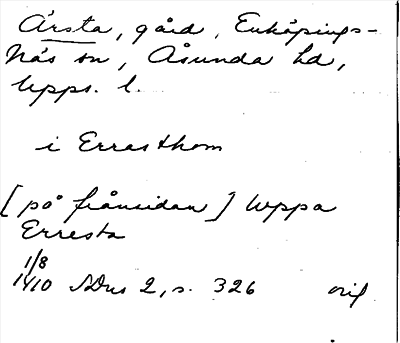 Ärsta, gård, Enköpings-
Näs sn, Åsunda hd,
Upps. l.
i Errasthom
[på frånsidan] Uppa
Erresta
1/8
1410 SDns 2, s. 326 orig